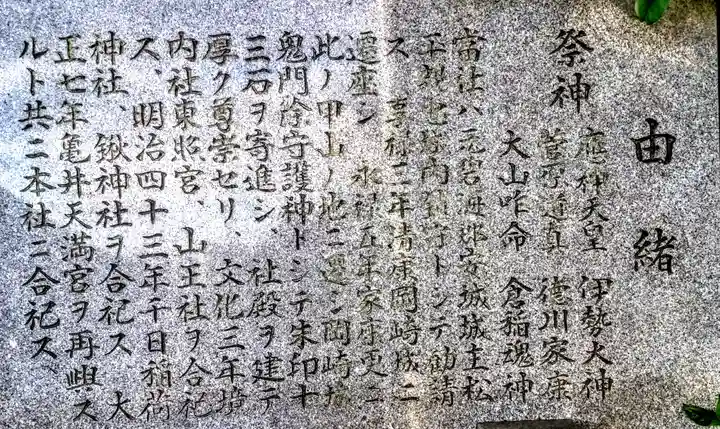 由緒
祭神
應神天皇　伊勢大神
菅原道真　德川家康
大山咋命　倉稲魂神
常社ハ元碧海郡安城城主松
平利 内鎮守トシテ勧請
ス 享禄三年清康岡崎城ニ
遷座シ 永禄五年家康更ニ
此ノ甲山ノ地ニ遷シ岡崎城
鬼門除守護神トシテ朱印十
三石ヲ寄進シ、社殿ヲ建テ
厚ク尊崇セリ、文化三年境
内社東照宮、山王社ヲ合祀
ス、明治四十三年千日稲荷
神社、鍬神社ヲ合祀ス 大
正七年亀井天満宮ヲ再興ス
ルト共ニ本社ニ合祀ス、